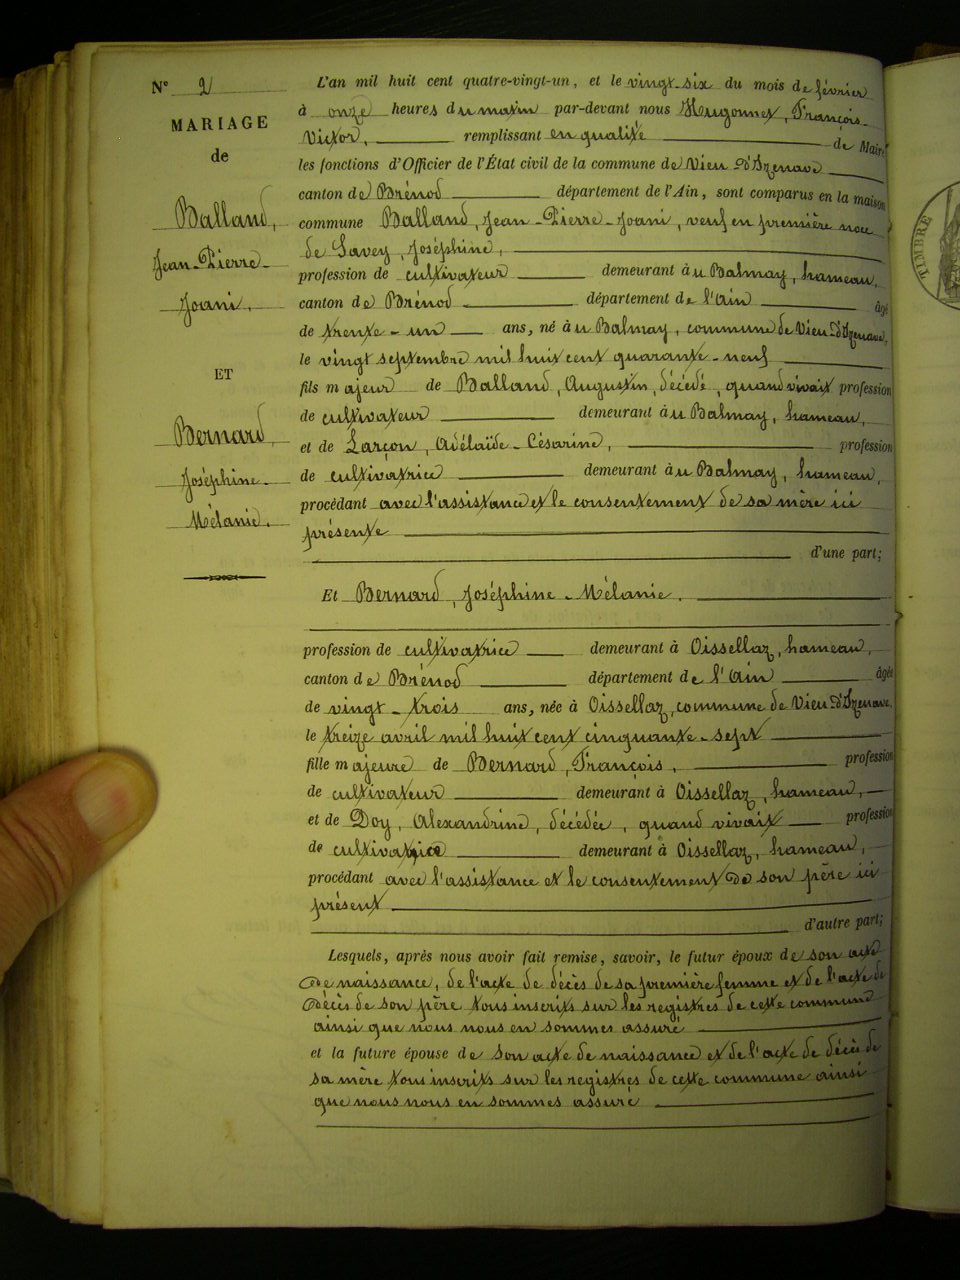 N° 2
MARIAGE
de
Balland,
Jean-Pierre-
Joani,
ET
Bernard,
Joséphine-
Mélanie.
L'an mil huit cent quatre-vingt-un, et le vingt-six du mois de février
à onze heures du matin par-devant nous Hugonnet, François-
Victor, remplissant en qualité de Maire
les fonctions d'Officier de l'État civil de la commune de Vieu D'Izenave
canton de Brénod département de l'Ain, sont comparus en la maison
commune Balland, Jean-Pierre-Joani, veuf en première noce
de Savey, Joséphine,
profession de cultivateur demeurant à u Balmay, hameau,
canton de Brénod département de l'Ain âgé
de trente-un ans, né à u Balmay, commune de Vieu D'Izenave,
le vingt septembre mil huit cent quarante-neuf
fils majeur de Balland, Augustin, décédé, quand vivait profession
de cultivateur demeurant à u Balmay, hameau,
et de Larçon, Adélaïde-Césarine, profession
de cultivatrice demeurant à u Balmay, hameau,
procédant avec l'assistance et le consentement de sa mère ici
présente
d'une part;
Et Bernard, Joséphine-Mélanie.
profession de cultivatrice demeurant à Oissellaz, hameau,
canton de Brénod département de l'Ain âgée
de vingt-trois ans, née à Oissellaz, commune de Vieu D'Izenave,
le treize avril mil huit cent cinquante-sept
fille majeure de Bernard, François, profession
de cultivateur demeurant à Oissellaz, hameau,
et de Doy, Alexandrine, décédée, quand vivait profession
de cultivatrice demeurant à Oissellaz, hameau,
procédant avec l'assistance et le consentement De son père ici
présent
d'autre part;
Lesquels, après nous avoir fait remise, savoir, le futur époux de son acte
De naissance, de l'acte de décès de sa première femme et de l'acte de
Décès de son père tous inscrits sur les registres de cette commune
ainsi que nous nous en sommes assuré
et la future épouse de son acte de naissance et de l'acte de décès de
sa mère tous inscrits sur les registres de cette commune ainsi
que nous nous en sommes assuré
TIMBRE